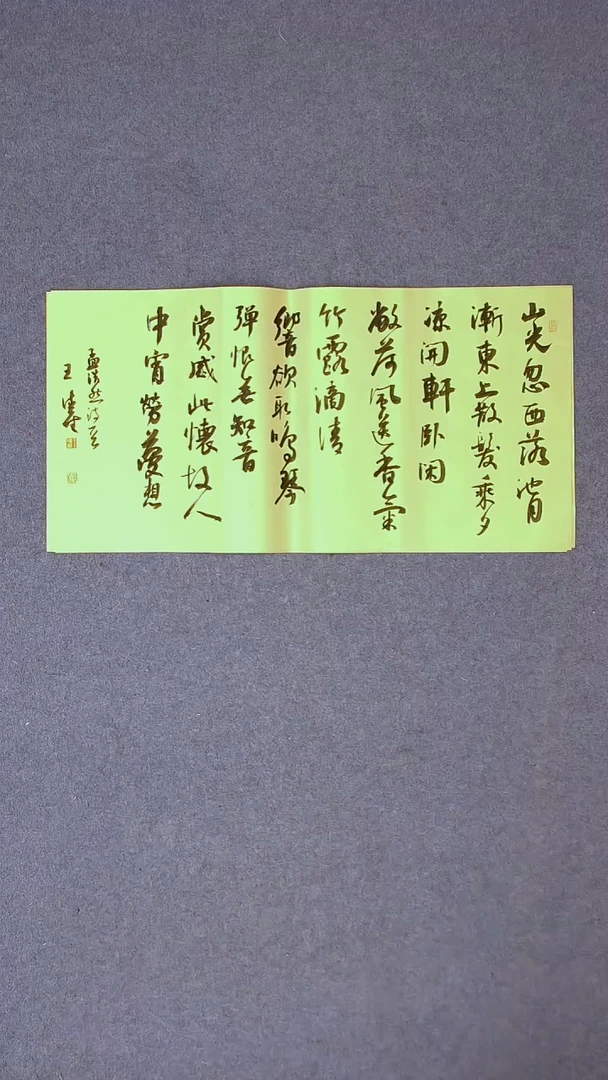 山光忽西落池月
漸東上散髮乘夕
凉開軒卧閑
敞荷風送香氣
竹露滴清
響欲取鳴琴
彈恨無知音
賞感此懷故人
中宵勞夢想
孟浩然诗
王